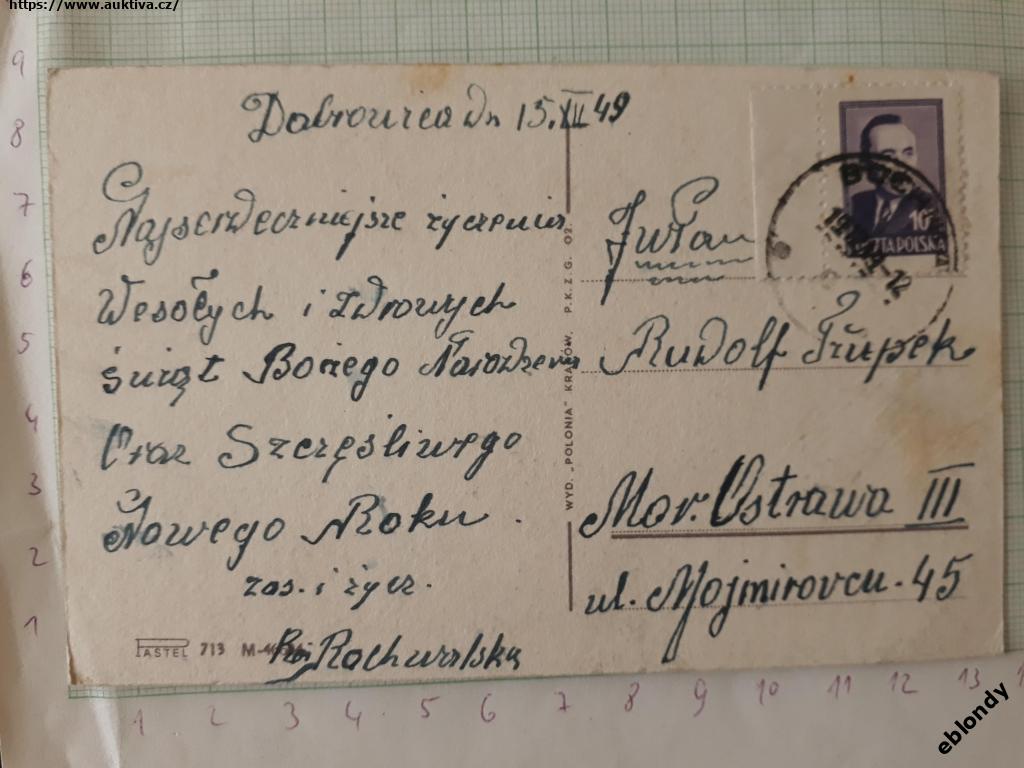 https://www.auktiva.cz/
Dabrowica dn 15.XII 49
Najserdeczniejsze życzenia
Wesołych i zdrowych
świąt Bożego Narodzenia
Oraz Szczęśliwego
Nowego Roku.
zas. i życz.
Rachwalska
PASTEL 713 M-
WYD. „POLONIA" KRAKÓW. P. K. Z. G. O2.
10
POCZTA POLSKA
BOCHNIA
Rudolf
Mor. Ostrawa III
ul. Mojmirovcu. 45
9
8
7
6
5
4
3
2
1
1 2 3 4 5 6 7 8 9 10 11 12 13
eblondy